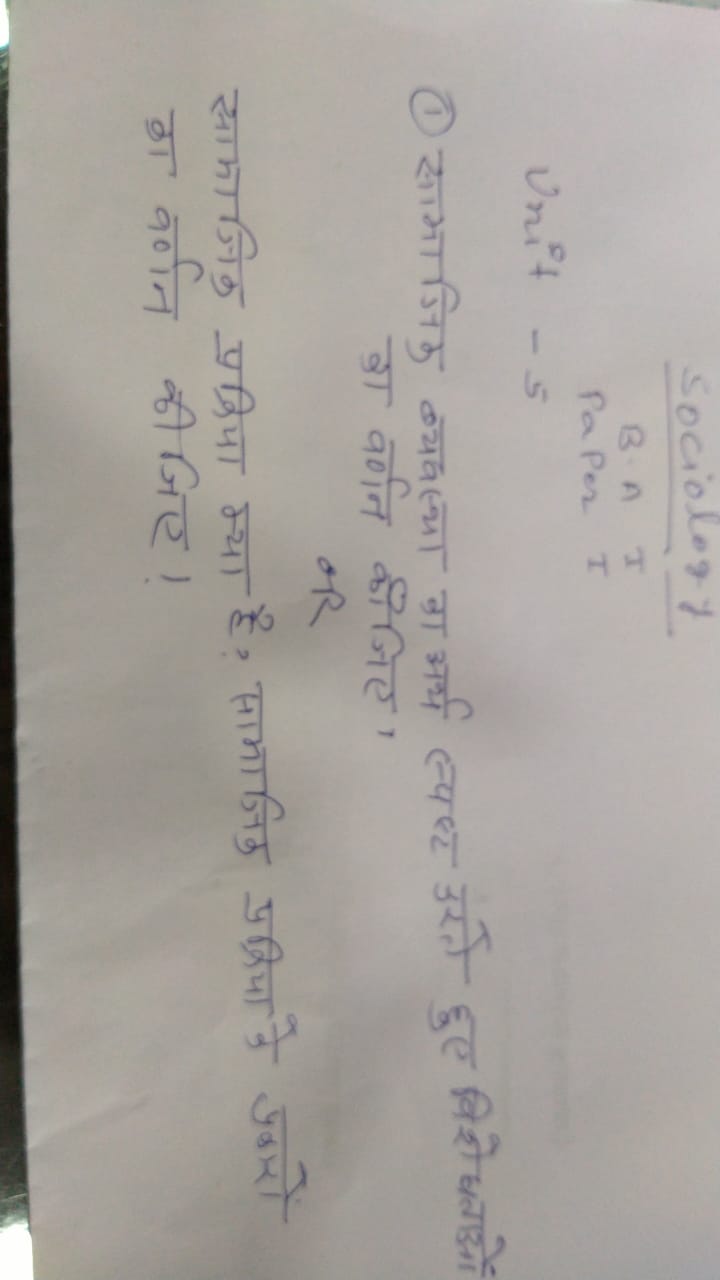 Sociology
B.A I
Paper I
Unit - 5
① सामाजिक व्यवस्था का अर्थ स्पष्ट करते हुए विशेषताओं
का वर्णन कीजिए।
OR
सामाजिक प्रक्रिया क्या है? सामाजिक प्रक्रिया के प्रकारों
का वर्णन कीजिए।